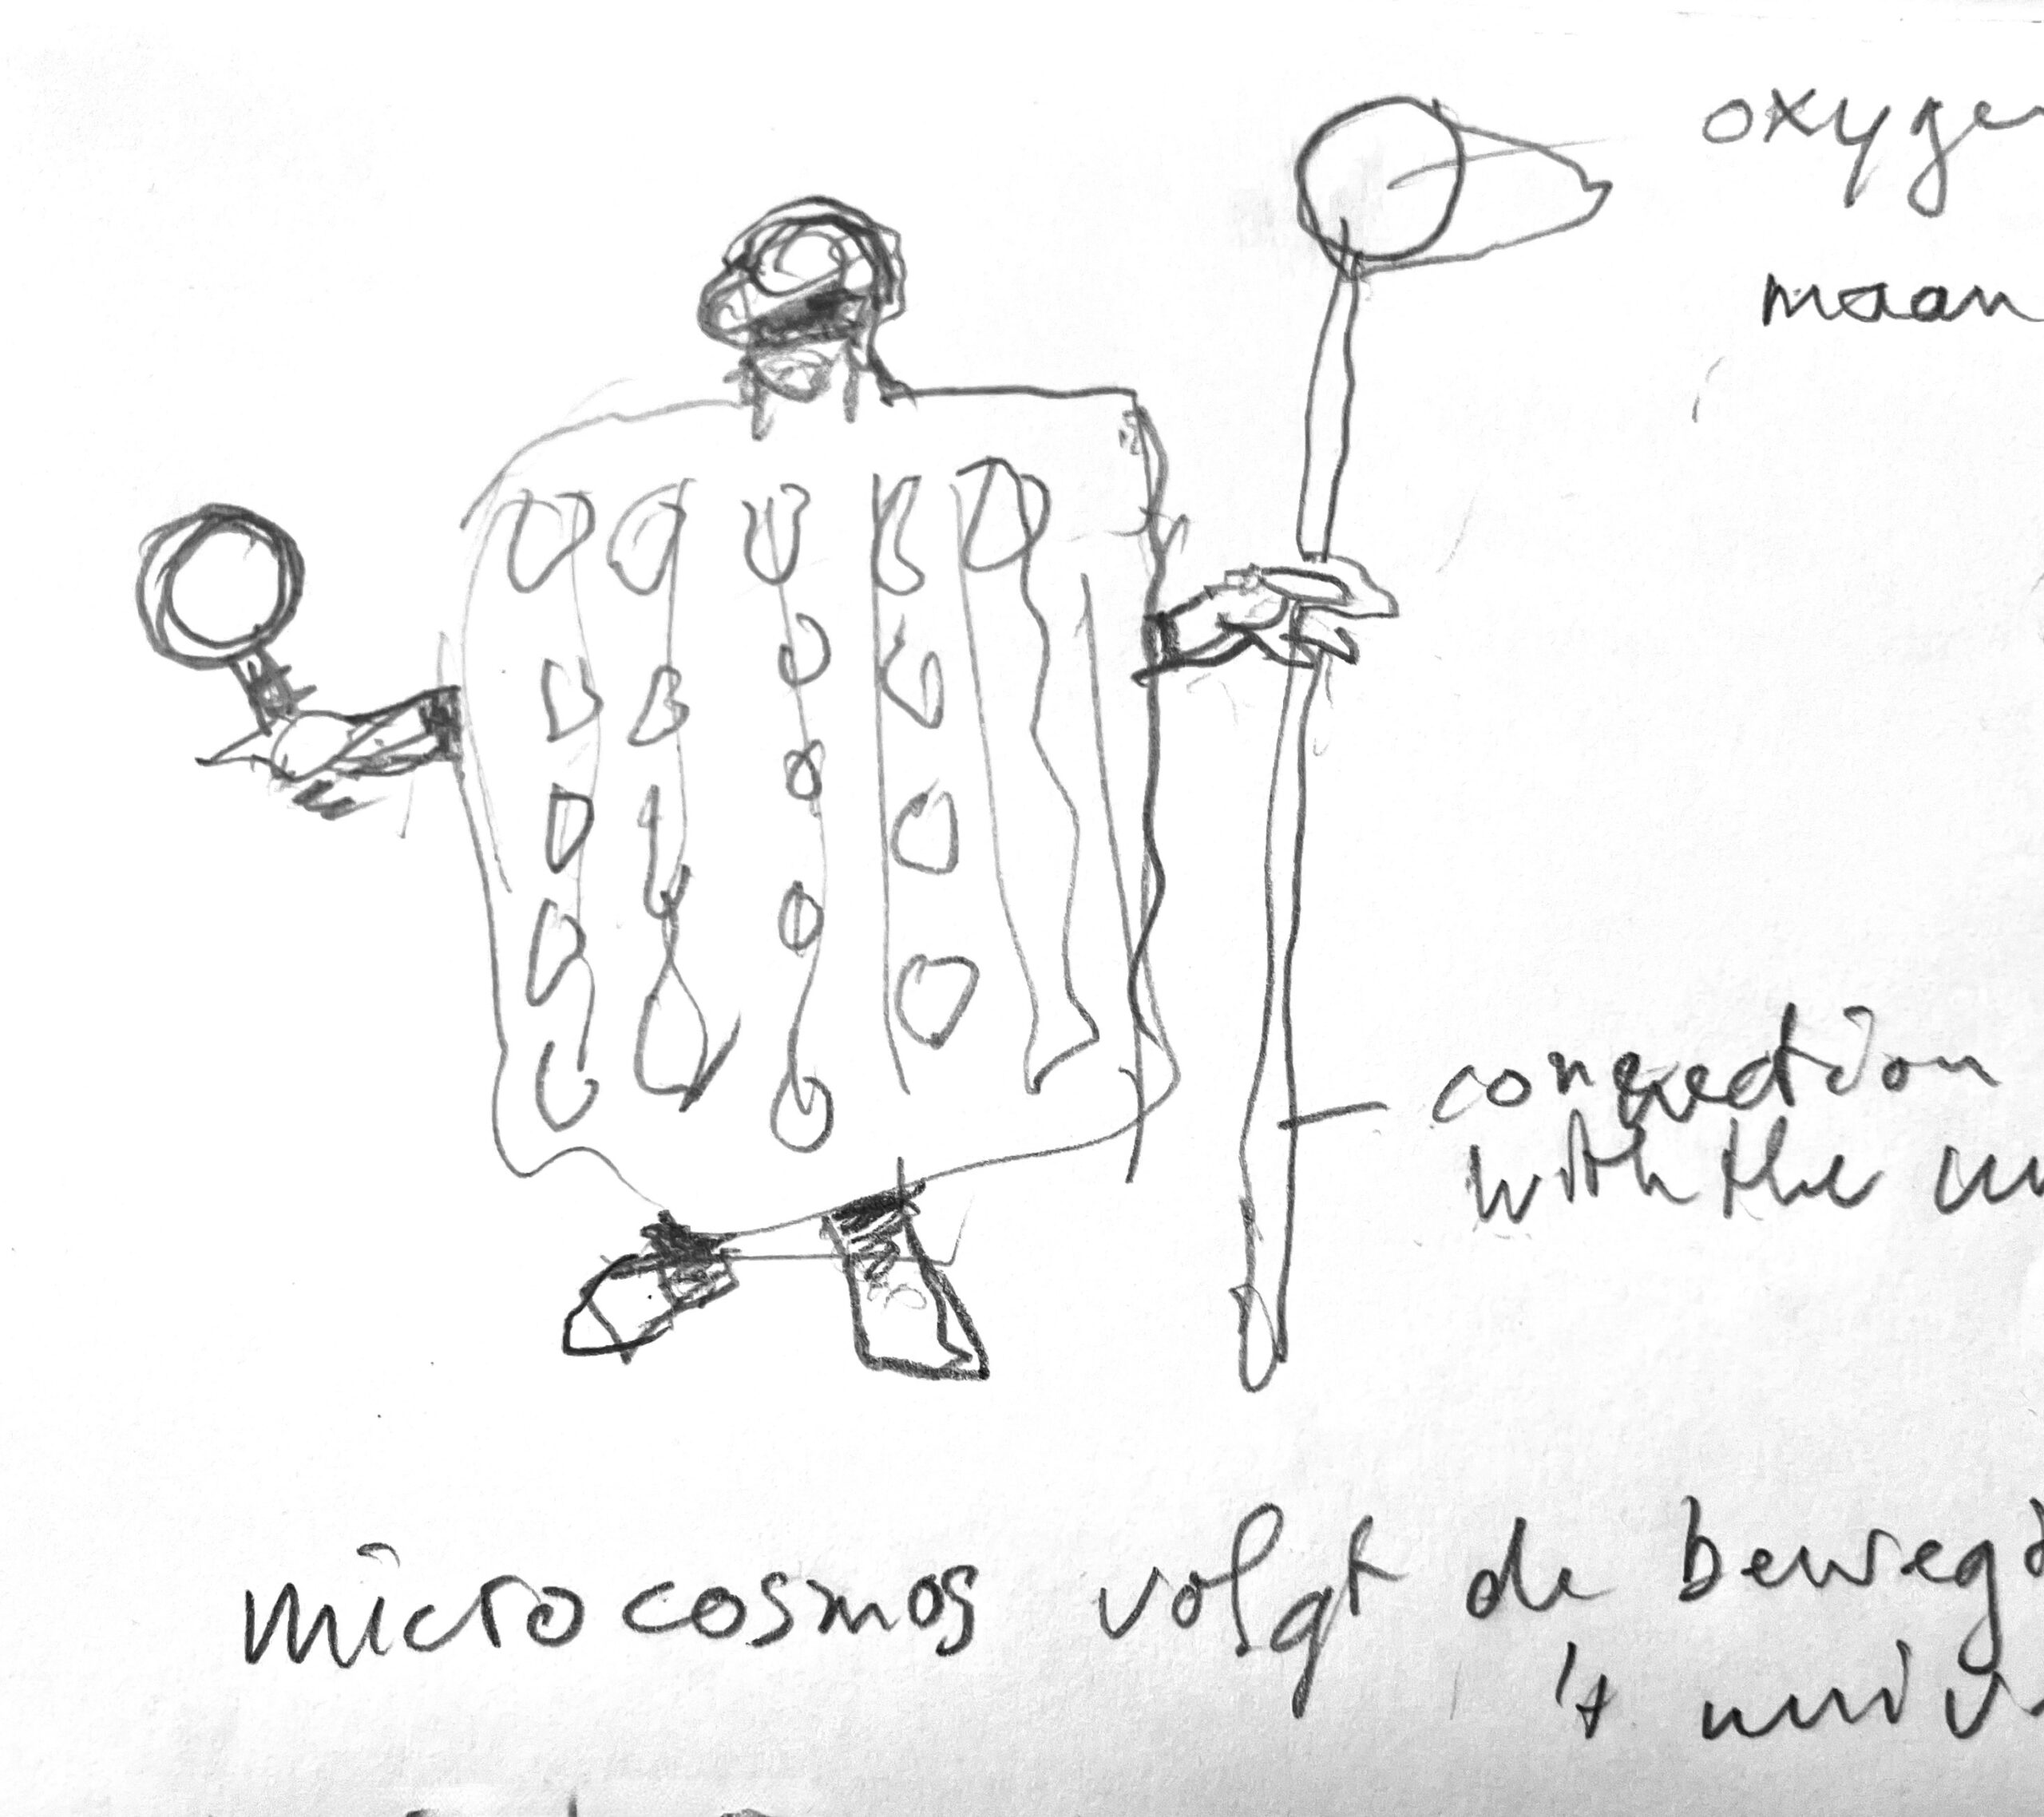 oxyge
maan
connection
with the
microcosmos volgt de beweg
't univ